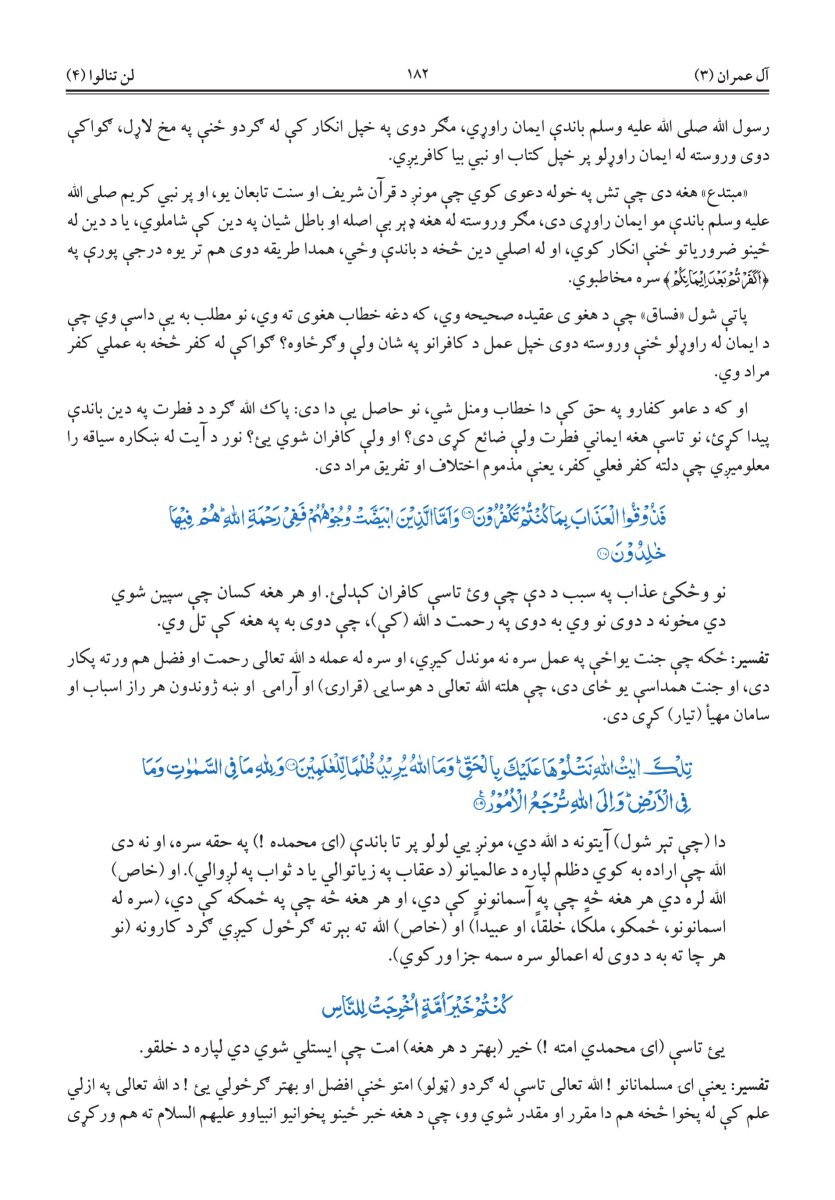 آل عمران (۳) ۱۸۲ لن تنالوا (۴)
رسول الله صلی الله علیه وسلم باندې ایمان راوړي، مګر دوی په خپل انکار کې له ګردو ځنې په مخ لاړل، ګواکې
دوی وروسته له ایمان راوړلو پر خپل کتاب او نبي بیا کافریږي.
«مبتدع» هغه دی چې تش په خوله دعوی کوي چې مونږ د قرآن شریف او سنت تابعان یو، او پر نبي کریم صلی الله
علیه وسلم باندې مو ایمان راوړی دی، مګر وروسته له هغه ډېر بې اصله او باطل شیان په دین کې شاملوي، یا د دین له
ځینو ضروریاتو ځنې انکار کوي، او له اصلي دین څخه د باندې وځي، همدا طریقه دوی هم تر یوه درجې پورې په
﴿اَكَفَرْتُمْ بَعْدَ اِيْمَانِكُمْ﴾ سره مخاطبوي.
پاتې شول «فساق» چې د هغو ی عقیده صحیحه وي، که دغه خطاب هغوی ته وي، نو مطلب به یې داسې وي چې
د ایمان له راوړلو ځنې وروسته دوی خپل عمل د کافرانو په شان ولې وګرځاوه؟ ګواکې له کفر څخه به عملي کفر
مراد وي.
او که د عامو کفارو په حق کې دا خطاب ومنل شي، نو حاصل یې دا دی: پاك الله ګرد د فطرت په دین باندې
پیدا کړئ، نو تاسې هغه ایماني فطرت ولې ضائع کړی دی؟ او ولې کافران شوي یئ؟ نور د آیت له ښکاره سیاقه را
معلومیږي چې دلته کفر فعلي کفر، یعنې مذموم اختلاف او تفریق مراد دی.
فَذُوْقُوا الْعَذَابَ بِمَا كُنْتُمْ تَكْفُرُوْنَ۝۱۰۶ وَاَمَّا الَّذِيْنَ ابْيَضَّتْ وُجُوْهُهُمْ فَفِيْ رَحْمَةِ اللهِ ؕ هُمْ فِيْهَا
خٰلِدُوْنَ۝۱۰۷
نو وڅکئ عذاب په سبب د دې چې وئ تاسې کافران کېدلئ. او هر هغه کسان چې سپین شوي
دي مخونه د دوی نو وي به دوی په رحمت د الله (کې)، چې دوی به په هغه کې تل وي.
تفسیر: ځکه چې جنت یواځې په عمل سره نه موندل کیږي، او سره له عمله د الله تعالی رحمت او فضل هم ورته پکار
دی، او جنت همداسې یو ځای دی، چې هلته الله تعالی د هوسایۍ (قرارۍ) او آرامۍ او ښه ژوندون هر راز اسباب او
سامان مهیأ (تیار) کړی دی.
تِلْكَ اٰيٰتُ اللهِ نَتْلُوْهَا عَلَيْكَ بِالْحَقِّ ؕ وَمَا اللهُ يُرِيْدُ ظُلْمًا لِّلْعٰلَمِيْنَ۝۱۰۸ وَلِلّٰهِ مَا فِي السَّمٰوٰتِ وَمَا
فِي الْاَرْضِ ؕ وَاِلَى اللهِ تُرْجَعُ الْاُمُوْرُ۝۱۰۹
دا (چې تېر شول) آیتونه د الله دي، مونږ یې لولو پر تا باندې (ای محمده !) په حقه سره، او نه دی
الله چې اراده به کوي دظلم لپاره د عالمیانو (د عقاب په زیاتوالي یا د ثواب په لږوالي). او (خاص)
الله لره دي هر هغه څه چې په آسمانونو کې دي، او هر هغه څه چې په ځمکه کې دي، (سره له
اسمانونو، ځمکو، ملکا، خلقاً، او عبیداً) او (خاص) الله ته بېرته ګرځول کیږي ګرد کارونه (نو
هر چا ته به د دوی له اعمالو سره سمه جزا ورکوي).
كُنْتُمْ خَيْرَ اُمَّةٍ اُخْرِجَتْ لِلنَّاسِ
یئ تاسې (ای محمدي امته !) خیر (بهتر د هر هغه) امت چې ایستلي شوي دي لپاره د خلقو.
تفسیر: یعنې ای مسلمانانو ! الله تعالی تاسې له ګردو (ټولو) امتو ځنې افضل او بهتر ګرځولي یئ ! د الله تعالی په ازلي
علم کې له پخوا څخه هم دا مقرر او مقدر شوي وو، چې د هغه خبر ځینو پخوانیو انبیاوو علیهم السلام ته هم ورکړی